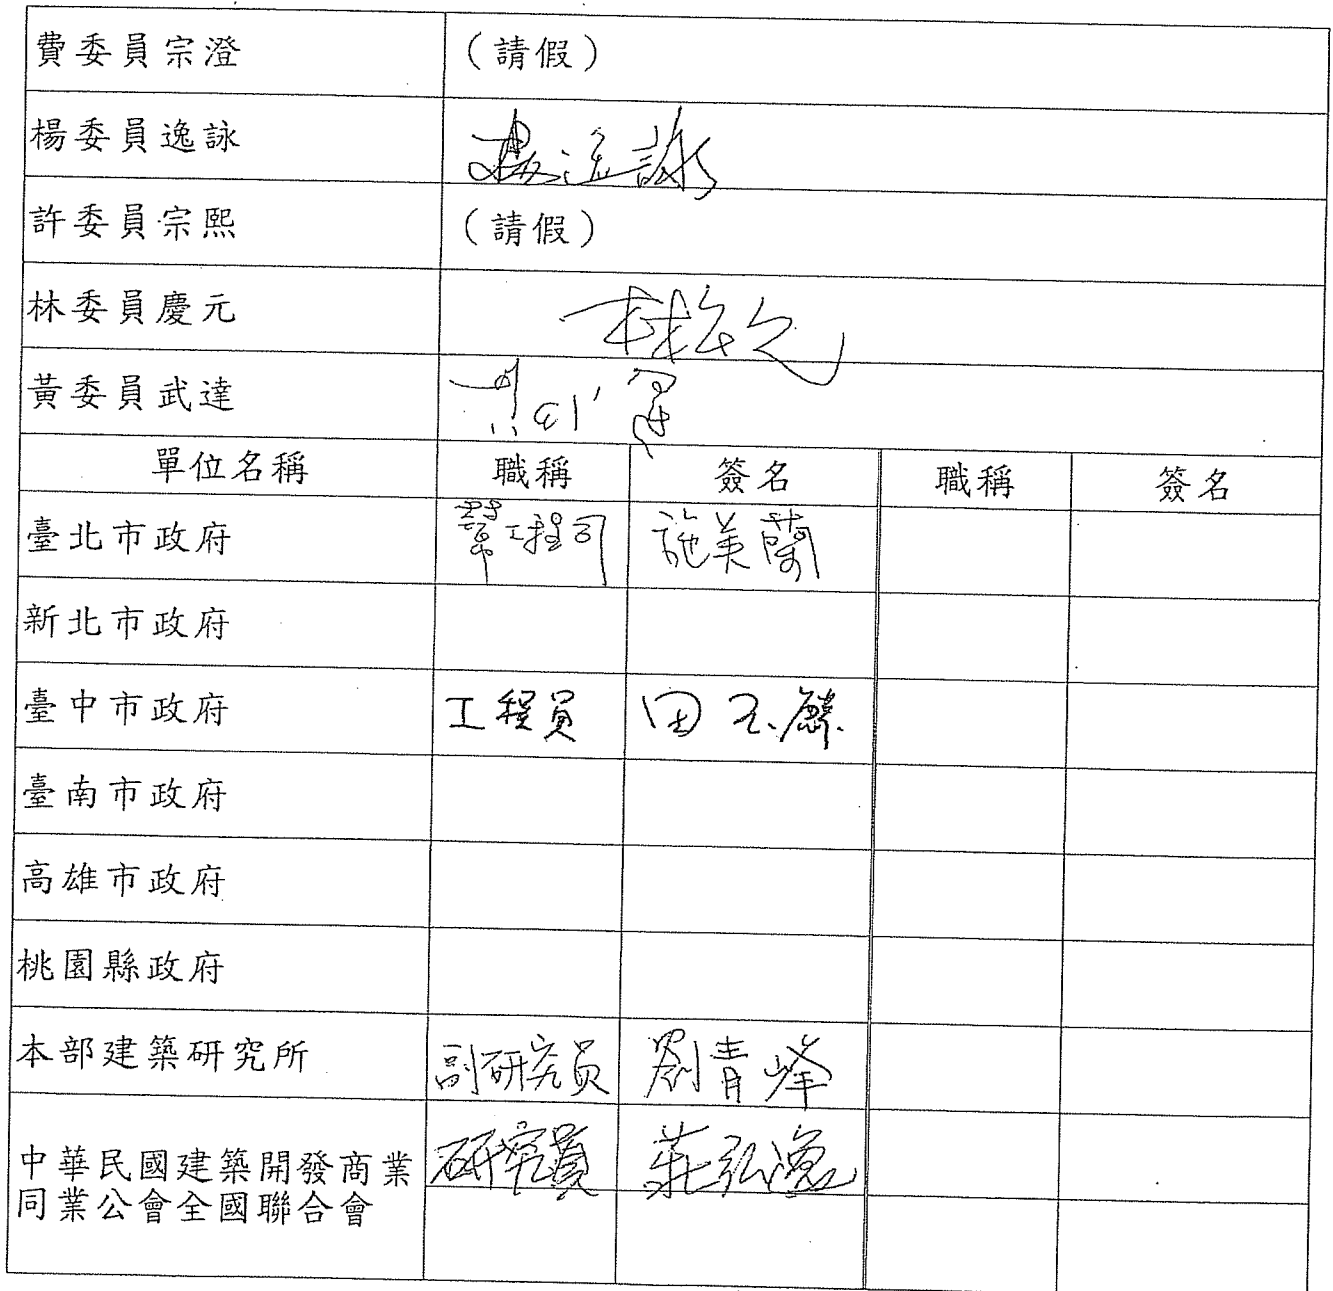 費委員宗澄 （請假）
楊委員逸詠 楊逸詠
許委員宗熙 （請假）
林委員慶元 林慶元
黃委員武達 黃武達
單位名稱 職稱 簽名 職稱 簽名
臺北市政府 幫工程司 施美蘭
新北市政府
臺中市政府 工程員 田玉麟
臺南市政府
高雄市政府
桃園縣政府
本部建築研究所 副研究員 劉青峰
中華民國建築開發商業 研究員
同業公會全國聯合會